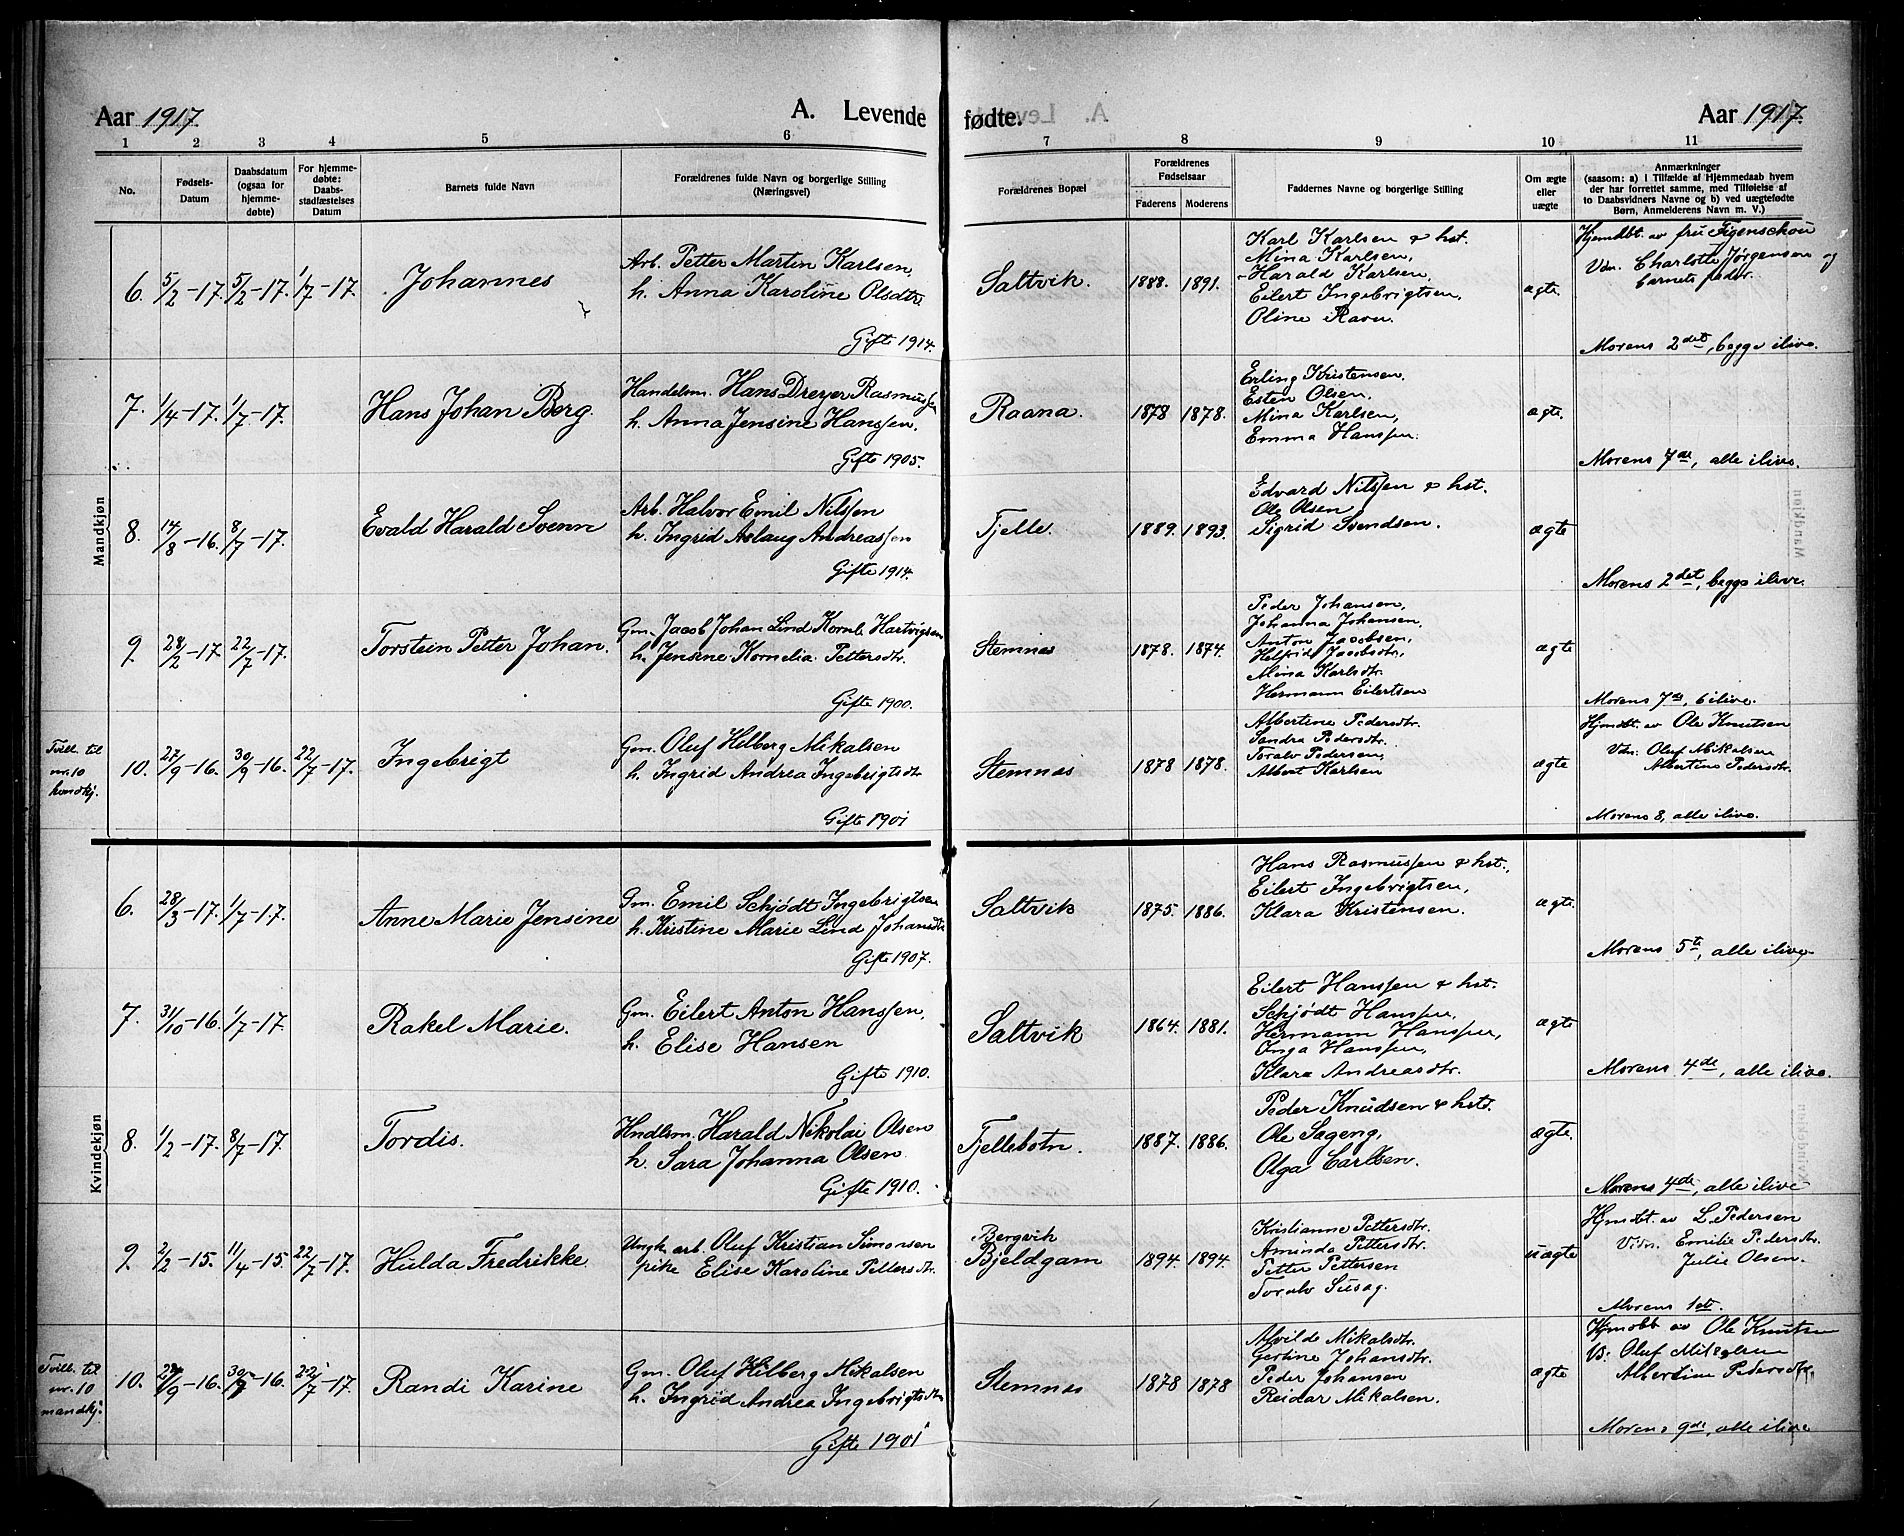 Aar 1917 A. Levende fødte. Aar 1917.
1 2 3 4 5 6 7 8 9 10 11
No.
Fødsels-
Datum
Daabsdatum
(ogsaa for
hjemme-
døbte)
For hjemme-
døbte:
Daabs-
stadfæstelses
Datum
Barnets fulde Navn
Forældrenes fulde Navn og borgerlige Stilling
(Næringsvei)
Forældrenes Bopæl
Forældrenes
Fødselsaar
Faderens Moderens
Faddernes Navne og borgerlige Stilling
Om ægte
eller
uægte
Anmærkninger
(saasom: a) i Tilfælde af Hjemmedaab hvem
der har forrettet samme, med Tilføielse af
to Daabsvidners Navne og b) ved uægtefødte
Børn, Anmelderens Navn m. V.)
Mandkjøn
6. 5/2-17. 5/2-17. 1/7-17.
Johannes
Arb. Petter Martin Karlsen,
h. Anna Karoline Olsdtr.
Gifte 1914.
Saltvik.
1888. 1891.
Karl Karlsen & hst.
Mina Karlsen,
Harald Karlsen,
Eilert Ingebrigtsen,
Oline Ravn.
ægte.
Hjemdbt. av fru Figenschou
Vdn. Charlotte Jørgensen og
barnets fader.
Morens 2det, begge ilive.
7. 1/4-17. 1/7-17.
Hans Johan Berg.
Handelsm. Hans Dreyer Rasmussen
h. Anna Jensine Hanssen.
Gifte 1905.
Raana.
1878 1878.
Erling Kristensen.
Esten Olsen,
Mina Karlsen,
Emma Hanssen.
ægte.
Morens 7de, alle ilive.
8. 14/8-16. 8/7-17.
Evald Harald Svenn
Arb. Halvor Emil Nilssen
h. Ingrid Aslaug Andreassen
Gifte 1914.
Fjelle.
1889. 1893.
Edvard Nilssen & hst.
Ole Olsen,
Sigrid Svendsen.
ægte
Morens 2det, begge ilive.
9. 28/2-17. 22/7-17.
Torstein Petter Johan.
Gm. Jacob Johan Lind Kornl. Hartvigsen
h. Jensine Kornelia Pettersdtr.
Gifte 1900.
Stemnes
1878. 1874.
Peder Johansen,
Johanna Johansen,
Anton Jacobsen,
Helfrid Jacobsdtr,
Mina Karlsdtr.
Hermann Eilertsen
ægte
Morens 7de, 6 ilive.
Tvill. til
nr. 10
kvindkj.
10. 27/9-16. 30/9-16. 22/7-17.
Ingebrigt
Gm. Oluf Hilberg Mikalsen
h. Ingrid Andrea Ingebrigtsdtr
Gifte 1901
Stemnes
1878 1878.
Albertine Pedersdtr.
Sandra Pedersdtr.
Toralv Pedersen,
Albert Karlsen
ægte
Hjmdbt. av Ole Knutsen
Vdn. Oluf Mikalsen
Albertine Pedersdtr.
Morens 8, alle ilive.
Kvindekjøn
6. 28/3-17. 1/7-17.
Anne Marie Jensine
Gm. Emil Schjødt Ingebrigtsen
h. Kristine Marie Lind Johansdtr
Gifte 1907.
Saltvik
1875. 1886.
Hans Rasmussen & hst.,
Eilert Ingebrigtsen,
Klara Kristensen.
ægte.
Morens 5te, alle ilive.
7. 31/10-16. 1/7-17.
Rakel Marie.
Gm. Eilert Anton Hanssen,
h. Elise Hansen
Gifte 1910.
Saltvik
1864. 1881.
Eilert Hanssen & hst.
Schjødt Hanssen,
Hermann Hanssen,
Inga Hanssen,
Klara Andreasdtr.
ægte
Morens 4de, alle ilive.
8. 1/2-17. 8/7-17.
Tordis.
Hndlsm. Harald Nikolai Olsen
h. Sara Johanna Olsen.
Gifte 1910.
Fjellebotn.
1887. 1886.
Peder Knudsen & hst.
Ole Sageng,
Olga Carlsen.
ægte.
Morens 4de, alle ilive
9. 2/2-15. 11/4-15. 22/7-17.
Hulda Fredrikke.
Ungk. arb. Oluf Kristian Simonsen
pike Elise Karoline Pettersdtr.
Bergvik
Bjeldgam
1894. 1894.
Kristianne Pettersdtr.
Aminda Pettersdtr.
Petter Pettersen
Toralv Susag.
uægte
Hjmdbt. av L. Pedersen
Vidn. Emilie Pedersdtr.
Julie Olsen.
Morens 1ste.
Tvill. til
nr. 10
mandkj.
10. 27/9-16. 30/9-16. 22/7-17.
Randi Karine
Gm. Oluf Hilberg Mikalsen
h. Ingrid Andrea Ingebrigtsdtr
Gifte 1901
Stemnes
1878 1878
Alvilde Mikalsdtr.
Gertine Johansdtr.
Peder Johansen
Reidar Mikalsen.
ægte
Hjmdbt av Ole Knutsen
V: Oluf Mikalsen
Albertine Pedersdtr.
Morens 9de, alle ilive